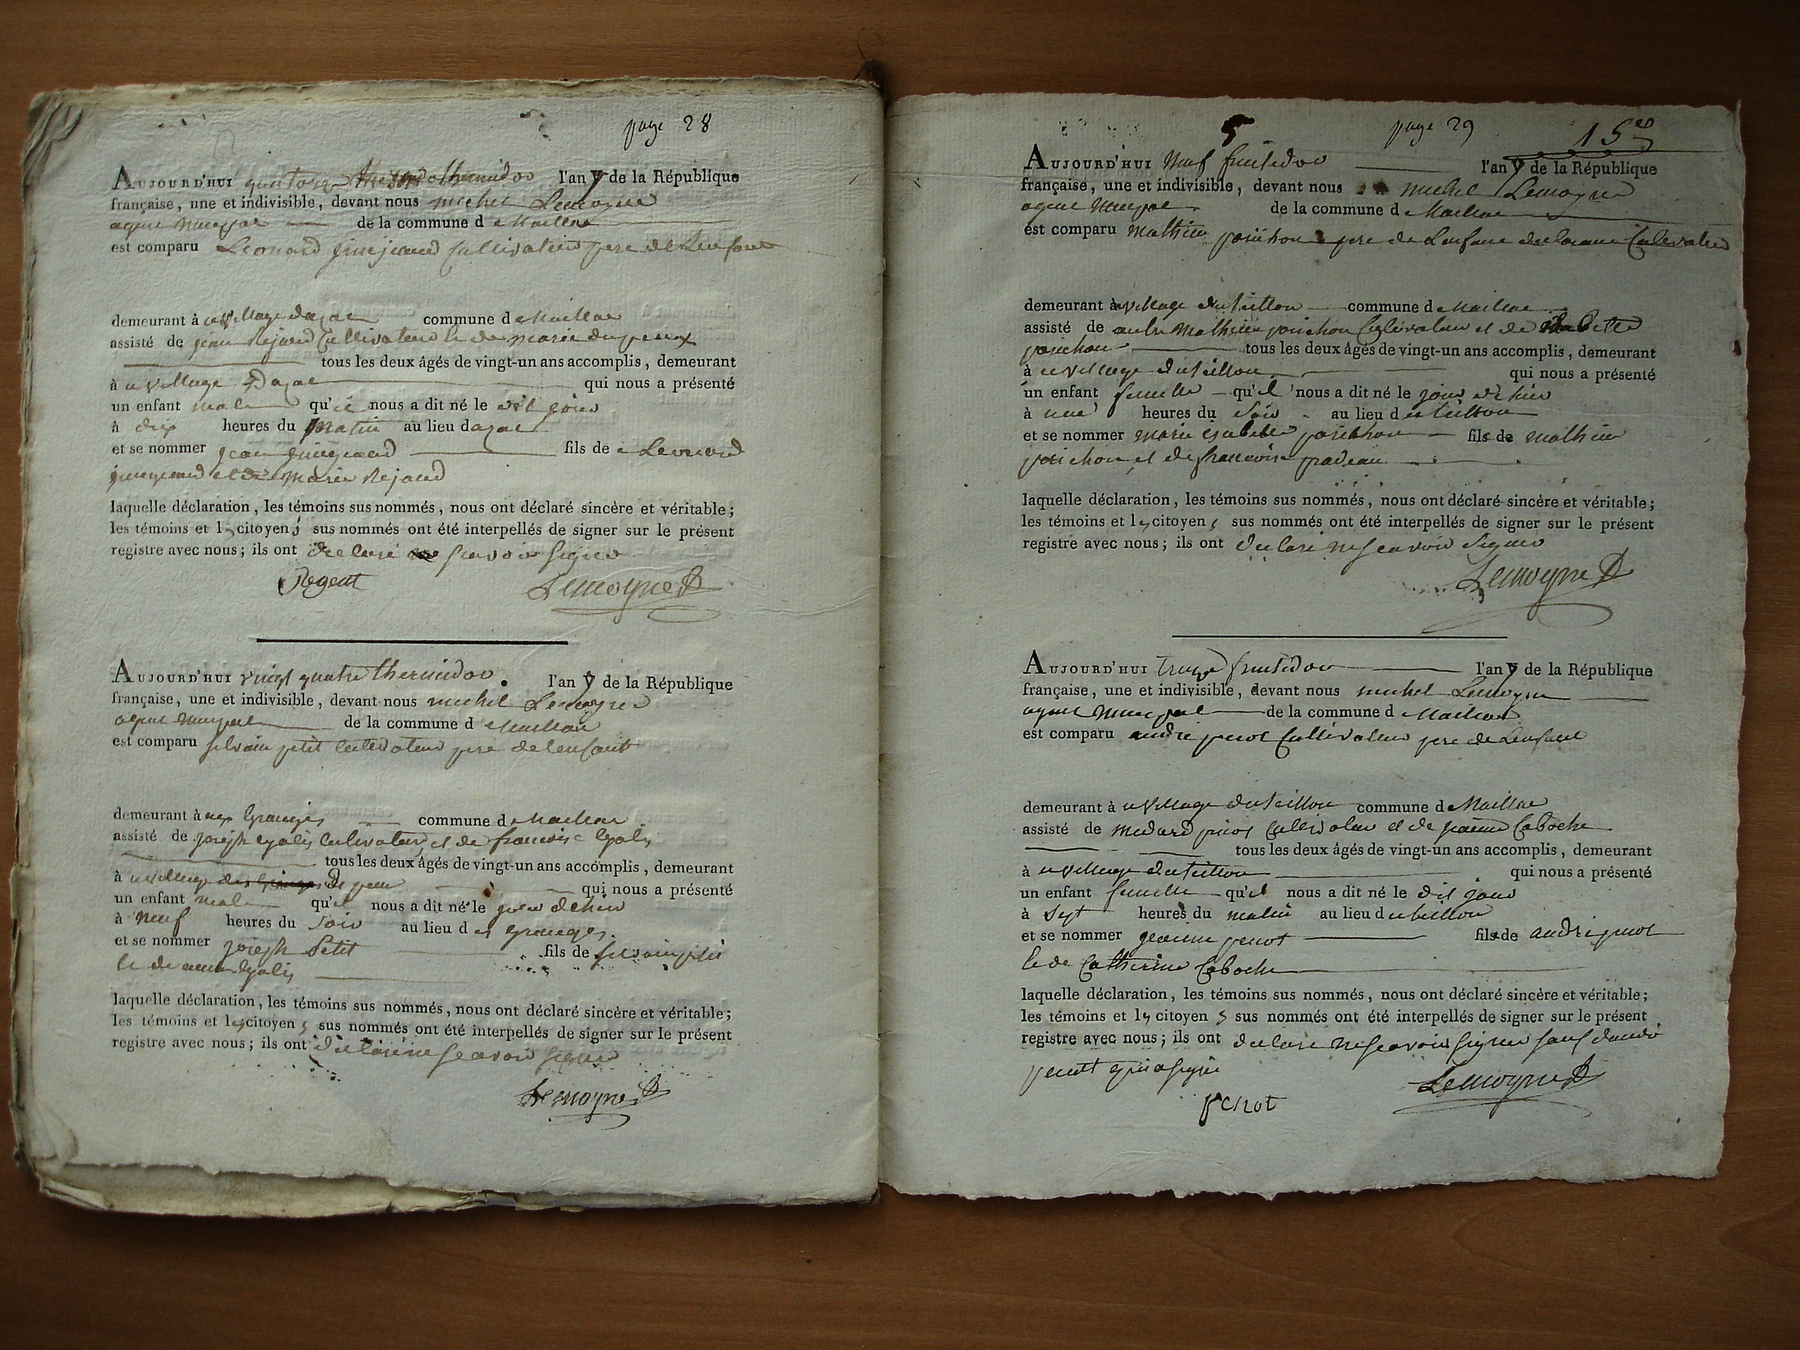 page 28
AUJOURD'HUI quatorze thermidor l'an V de la République
française, une et indivisible, devant nous michel Lemoyne
agent de la commune d Maillac
est comparu Leonard cullivateur pere de Lenfant
demeurant à u village dazac commune d Maillac
assisté de jean Rejaud Cullivateur le de marie dupeux
tous les deux âgés de vingt-un ans accomplis, demeurant
à u village Dazac qui nous a présenté
un enfant male qu'il nous a dit né le dit jour
à dix heures du matin au lieu dazac
et se nommer jean fils de Leonard
et de marie Rejaud
laquelle déclaration, les témoins sus nommés, nous ont déclaré sincère et véritable;
les témoins et l citoyens sus nommés ont été interpellés de signer sur le présent
registre avec nous; ils ont declaré ne scavoir signer
Lemoyne
AUJOURD'HUI vingt quatre thermidor l'an V de la République
française, une et indivisible, devant nous michel Lemoyne
agent de la commune d Maillac
est comparu silvain petit cultivateur pere de lenfant
demeurant à ux Granges commune d Maillac
assisté de joseph lyolis Cultivateur et de francois lyolis
tous les deux âgés de vingt-un ans accomplis, demeurant
à u village qui nous a présenté
un enfant male qu'il nous a dit né le jour dhier
à neuf heures du soir au lieu des Granges
et se nommer joseph Petit fils de silvain petit
le de lyolis
laquelle déclaration, les témoins sus nommés, nous ont déclaré sincère et véritable;
les témoins et l citoyens sus nommés ont été interpellés de signer sur le présent
registre avec nous; ils ont declaré ne scavoir signer
Lemoyne
5 page 29 15
AUJOURD'HUI neuf fructidor l'an V de la République
française, une et indivisible, devant nous michel Lemoyne
agent de la commune d Maillac
est comparu mathieu porichon pere de Lenfant Cultivateur
demeurant à u village du teillou commune d Maillac
assisté de autre mathieu porichon Cultivateur et de
porichon tous les deux âgés de vingt-un ans accomplis, demeurant
à u village du teillou qui nous a présenté
un enfant femelle qu'il nous a dit né le jour dhier
à une heures du soir au lieu du teillou
et se nommer marie isabelle porichon fils de mathieu
porichon et de francoise pradeau
laquelle déclaration, les témoins sus nommés, nous ont déclaré sincère et véritable;
les témoins et l citoyens sus nommés ont été interpellés de signer sur le présent
registre avec nous; ils ont declaré ne scavoir signer
Lemoyne
AUJOURD'HUI treize fructidor l'an V de la République
française, une et indivisible, devant nous michel Lemoyne
agent de la commune d Maillac
est comparu andre penot Cullivateur pere de Lenfant
demeurant à u village du teillou commune d Maillac
assisté de medard penot Cullivateur et de jeanne Caboche
tous les deux âgés de vingt-un ans accomplis, demeurant
à u village du teillou qui nous a présenté
un enfant femelle qu'il nous a dit né le dit jour
à sept heures du matin au lieu du teillou
et se nommer jeanne penot fils de andre penot
le de Catherine Caboche
laquelle déclaration, les témoins sus nommés, nous ont déclaré sincère et véritable;
les témoins et l citoyens sus nommés ont été interpellés de signer sur le présent
registre avec nous; ils ont declaré ne scavoir signer sauf dandré
penot qui a signé
Lemoyne
penot